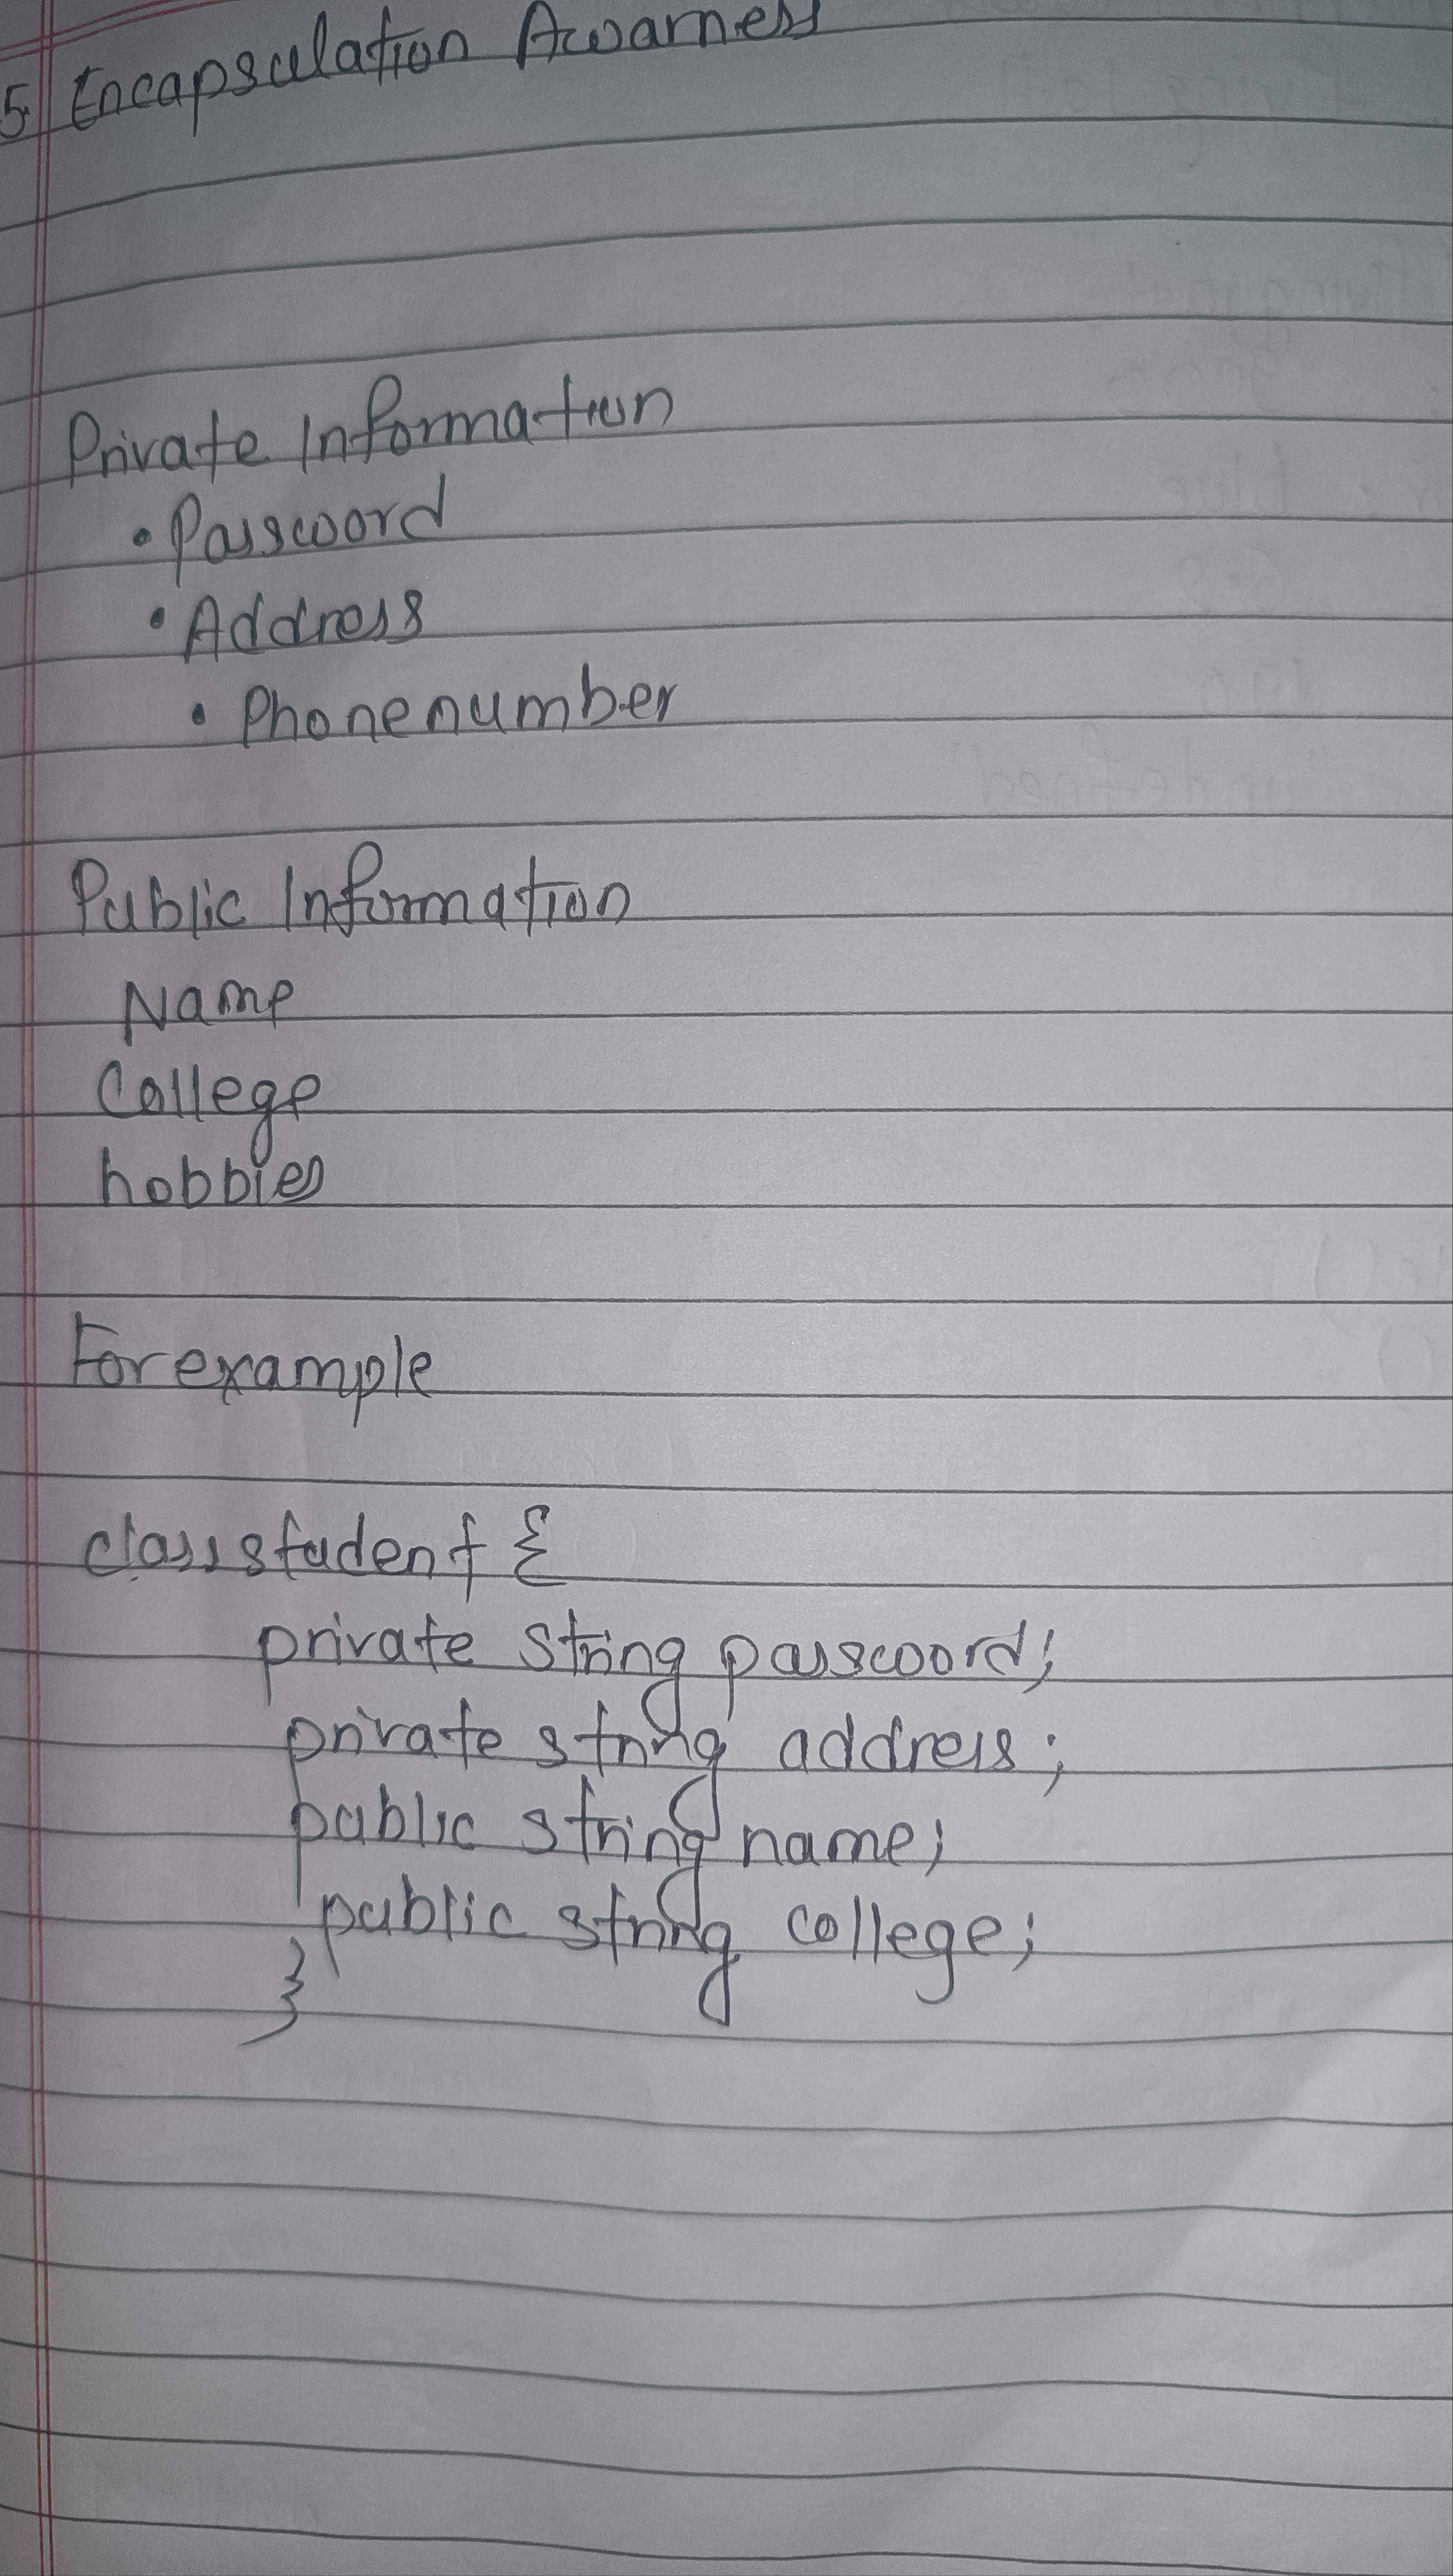 5 Encapsulation Awarness
Private Information
• Password
• Address
• Phonenumber
Public Information
Name
College
hobbies
For example
class student {
private String password;
private string address;
public string name;
public string college;
}